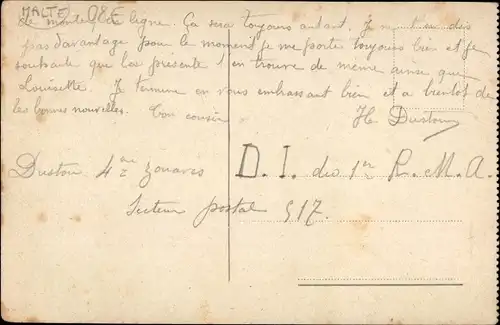 MALTE 08E
de monter en ligne. Ça sera toujours autant. Je ne t'en dis
pas davantage pour le moment je me porte toujours bien et je
souhaite que la présente t'en trouve de même ainsi que
Louisette. Je termine en vous embrassant bien et a bientot de
les bonnes nouvelles. Ton cousin
H. Duston
Duston 4me zouaves D. I. du 1er R. M. A.
Secteur postal 517.